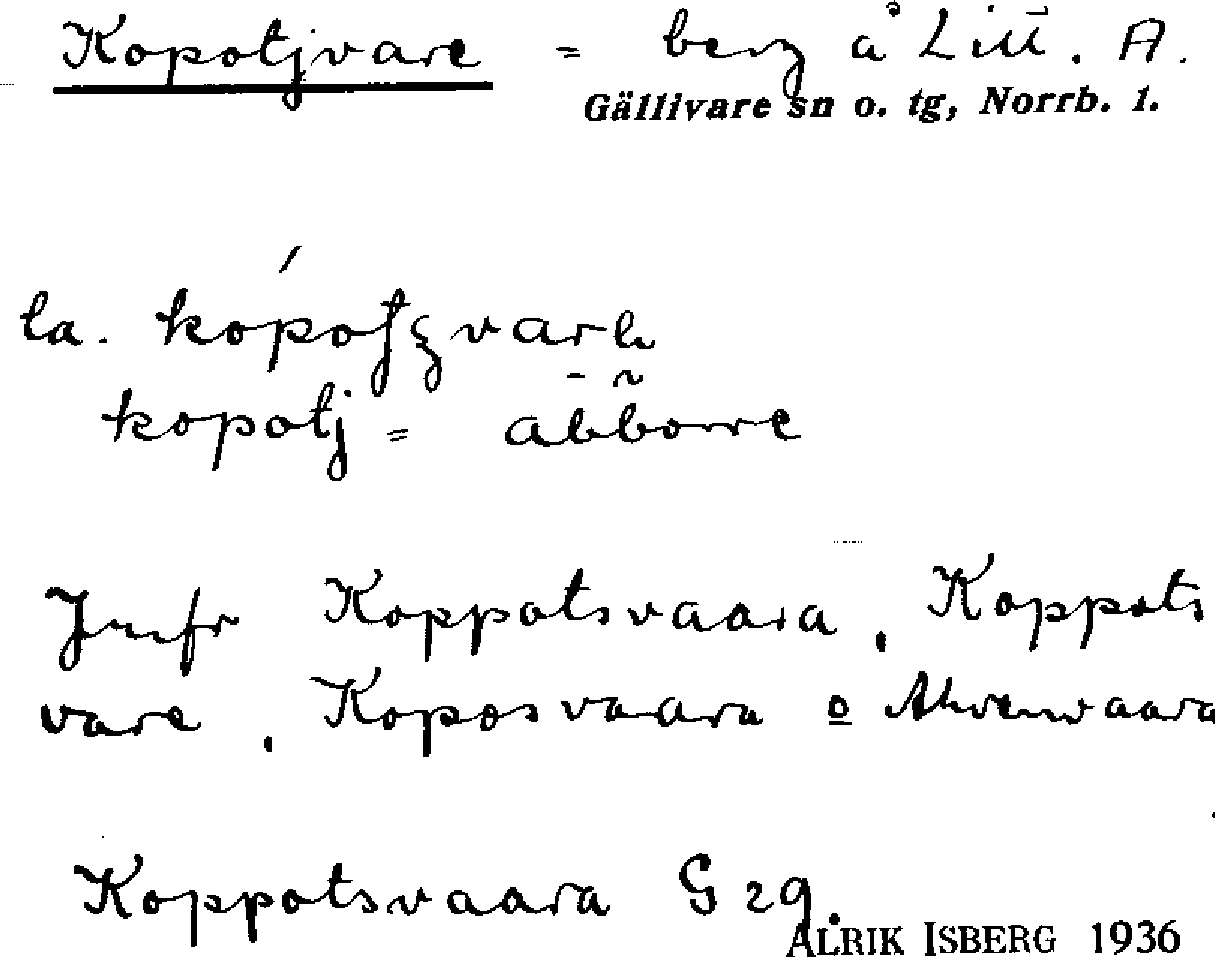 Kopotjvare = berg å Litt. A.
Gällivare sn o. tg, Norrb. l.
la.
kopotj = abborre
Jmfr Koppotsvaara, Koppots
vare, Koposvaara o Ahvenvaara
Koppotsvaara G 29.
ALRIK ISBERG 1936